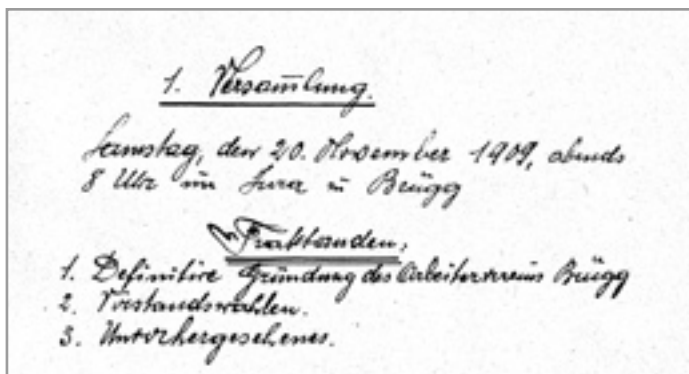 1. Versam̅lung.
Samstag, den 20. November 1909, abends
8 Uhr im Jura in Brügg
Traktanden,
1. Definitive Gründung des Arbeitervereins Brügg
2. Vorstandswahlen.
3. Unvorhergesehenes.